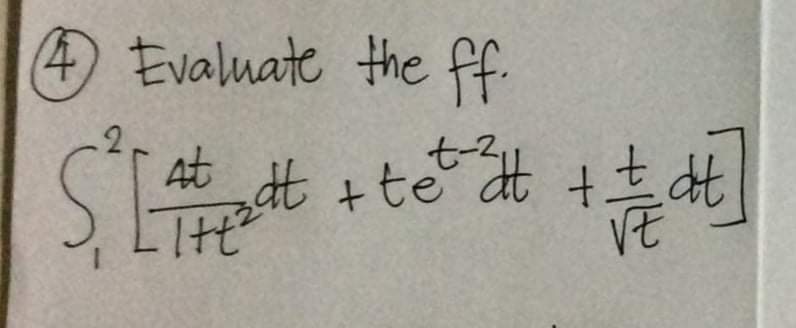 ④ Evaluate the ff.
∫₁² [4t/(1+t²) dt + te^(t-2) dt + t/√t dt]